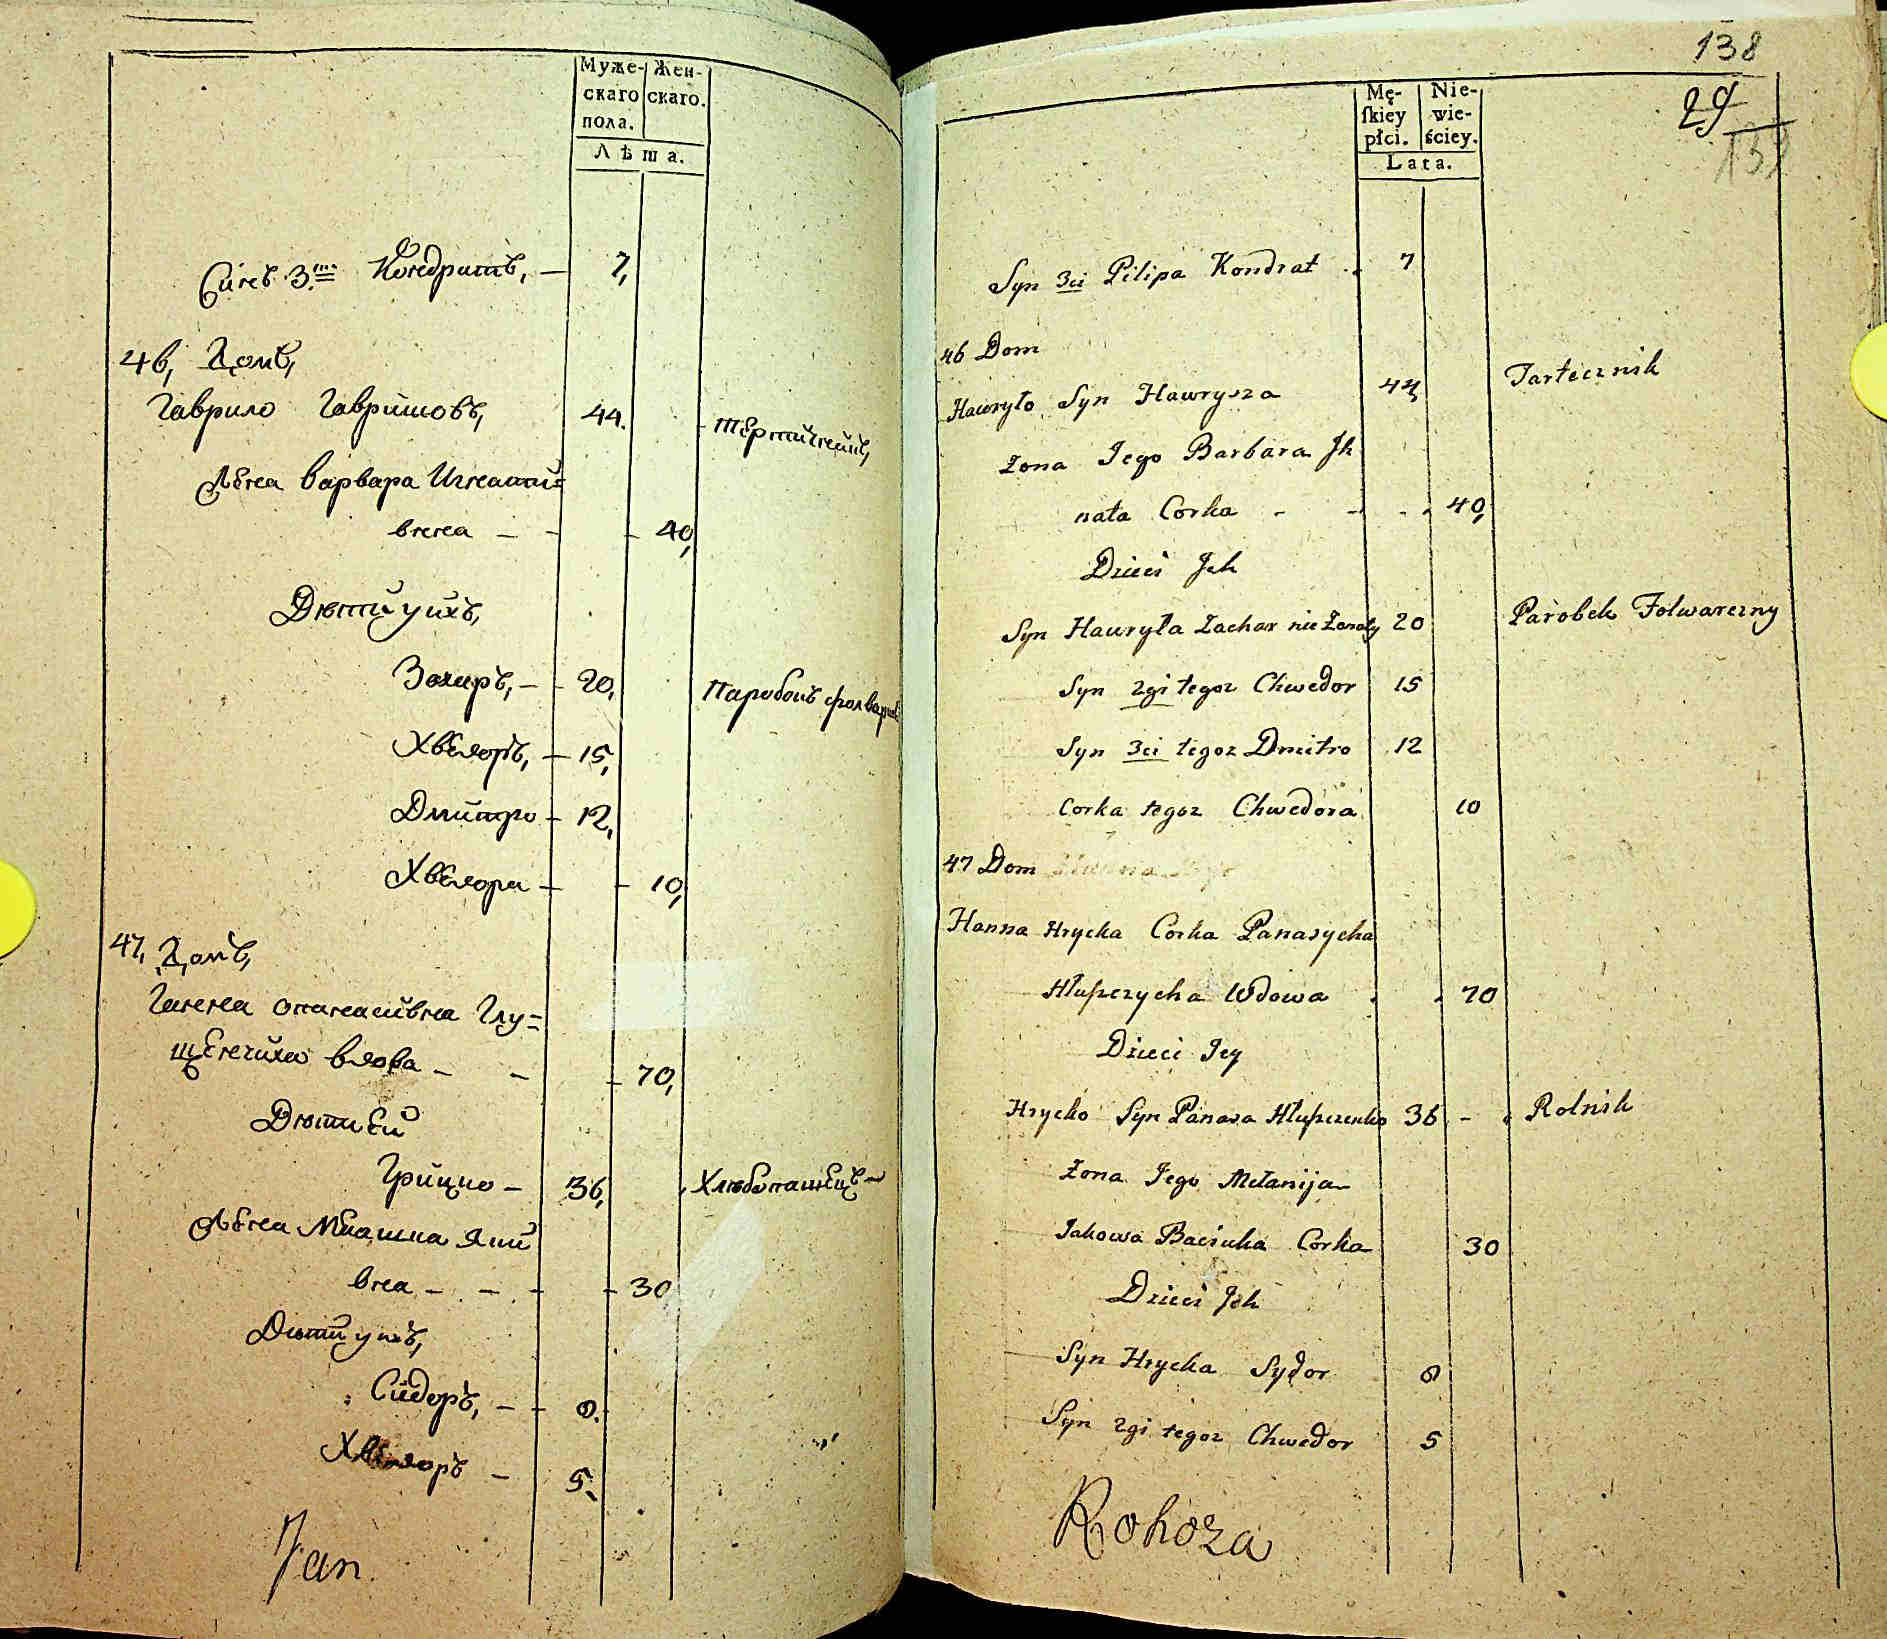 Муже-
скаго
пола.
Жен-
скаго.
Лѣта.
Сынъ 3й Кондратъ, — 7,
46, Домъ,
Гаврило Гавришовъ, 44. тертичникъ,
Жена Варвара Игнати=
вна — - - 40,
Дѣти ихъ,
Захаръ, — - 20, Паробокъ фолварко
Хведоръ, — 15,
Дмитро - 12,
Хведора — - 10,
47, Домъ,
Ганна Опанасивна Глу=
вдова — - - 70,
Дѣти ей
Грицко — 36, Хлебопашецъ —
Жена
вна — - - - 30
Дѣти ихъ,
Сидоръ, — - 8.
Хведоръ — 5,
Jan
138
29
Mę-
skiey
płci.
Nie-
wie-
ściey.
Lata.
Syn 3ci Pilipa Kondrat . 7
46 Dom
Hawryło Syn Hawrysza 44, Tartecznik
Żona Jego Barbara Jh
nata Corka - - - . 40,
Dzieci Jch
Syn Hawryła Zachar nie Żonaty 20 Parobek Folwarczny
Syn 2gi tegoz Chwedor 15
Syn 3ci tegoz Dmitro 12
Corka tegoz Chwedora 10
47 Dom
Hanna Hrycka Corka Panasycha
Wdowa . . 70
Dzieci Jey
Hrycko Syn Panasa 36 - . Rolnik
Żona Jego Mełanija
Jakowa Corka 30
Dzieci Jch
Syn Hrycka Sydor 8
Syn 2gi tegoz Chwedor 5
Rohoza